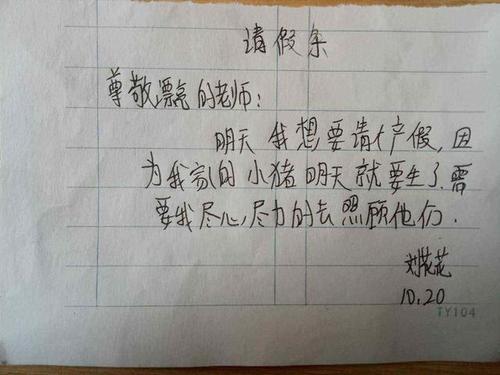 请假条
尊敬漂亮的老师:
明天我想要请个产假,因
为我家的小猪明天就要生了.需
要我尽心,尽力的去照顾他们.
刘花花
10.20
TY104